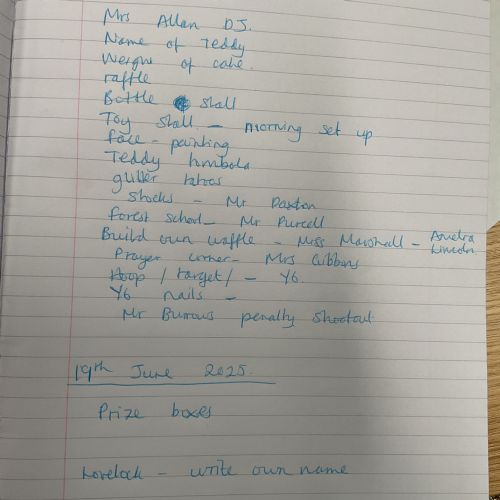 Mrs Allan DJ.
Name of Teddy
Weight of cake.
raffle
Bottle stall
Toy stall - morning set up
face-painting
Teddy tombola
glitter tattoos
Stocks - Mr Paxton
Forest school - Mr Purcell
Build own waffle - Miss Marshall - Lincoln.
Prayer corner - Mrs Gibbens
Hoop / target / - Y6.
Y6 nails -
Mr Burrows penalty shootout
19th June 2025.
Prize boxes
Lovelock - write own name